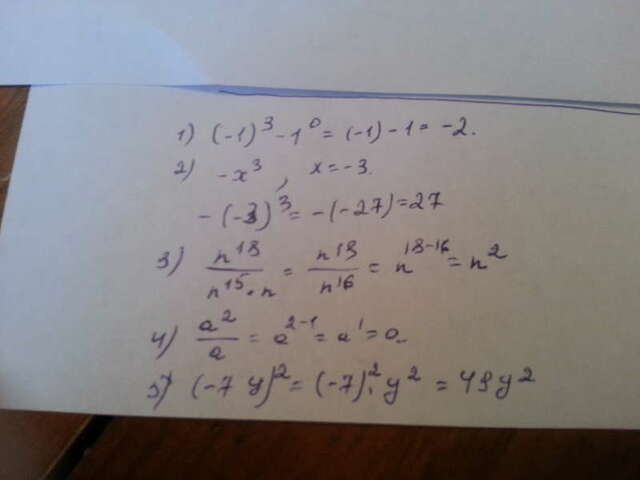 1) (-1)³ - 1⁰ = (-1) - 1 = -2.
2) -x³, x = -3.
-(-3)³ = -(-27) = 27
3) n¹⁸/n¹⁵·n = n¹⁸/n¹⁶ = n¹⁸⁻¹⁶ = n²
4) a²/a = a²⁻¹ = a¹ = a.
5) (-7y)² = (-7)²·y² = 49y²